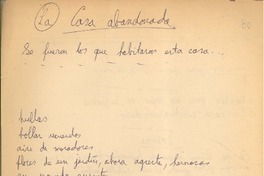 La Casa abandonada
Se fueron los que habitaron esta casa...
huellas
hollar recuerdos
aire de moradores
flores de un jardín, ahora agreste, hermosas